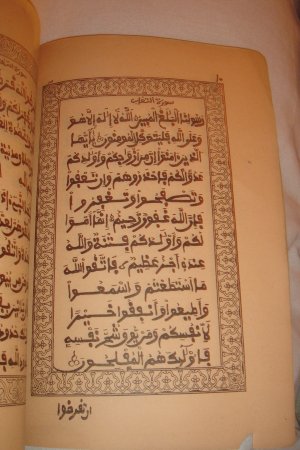 سورة التغابن
رسولنا البلغ المبين الله لا إله إلا هو
وعلى الله فليتوكل المومنون يأيها
الذين ءامنوا إن من أزوجكم وأولدكم
عدوا لكم فاحذروهم وإن تعفوا
وتصفحوا وتغفروا
فإن الله غفور رحيم إنما أموا
لكم وأولدكم فتنة والله
عنده أجر عظيم فاتقوا الله
ما استطعتم واسمعوا
وأطيعوا وأنفقوا خيرا
لأنفسكم ومن يوق شح نفسه
فأولئك هم المفلحون
إن تقرضوا